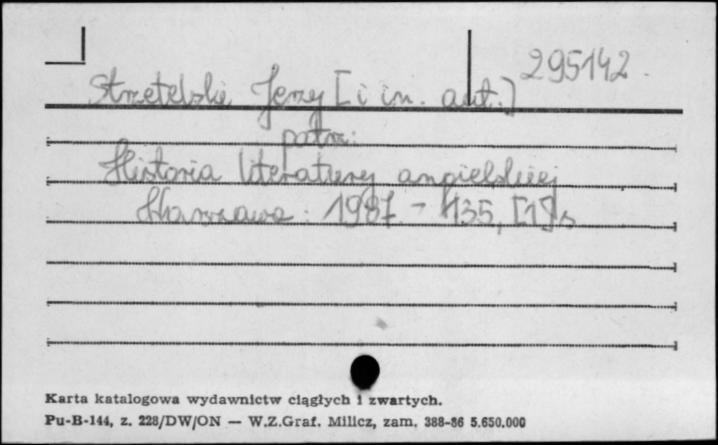 295142.
Strzetelski Jerzy [i in. aut.]
patrz:
Historia literatury angielskiej
Warszawa: 1987. - 135, [1] s
Karta katalogowa wydawnictw ciągłych i zwartych.
Pu-B-144, z. 228/DW/ON — W.Z.Graf. Milicz, zam. 388-86 5.650.000